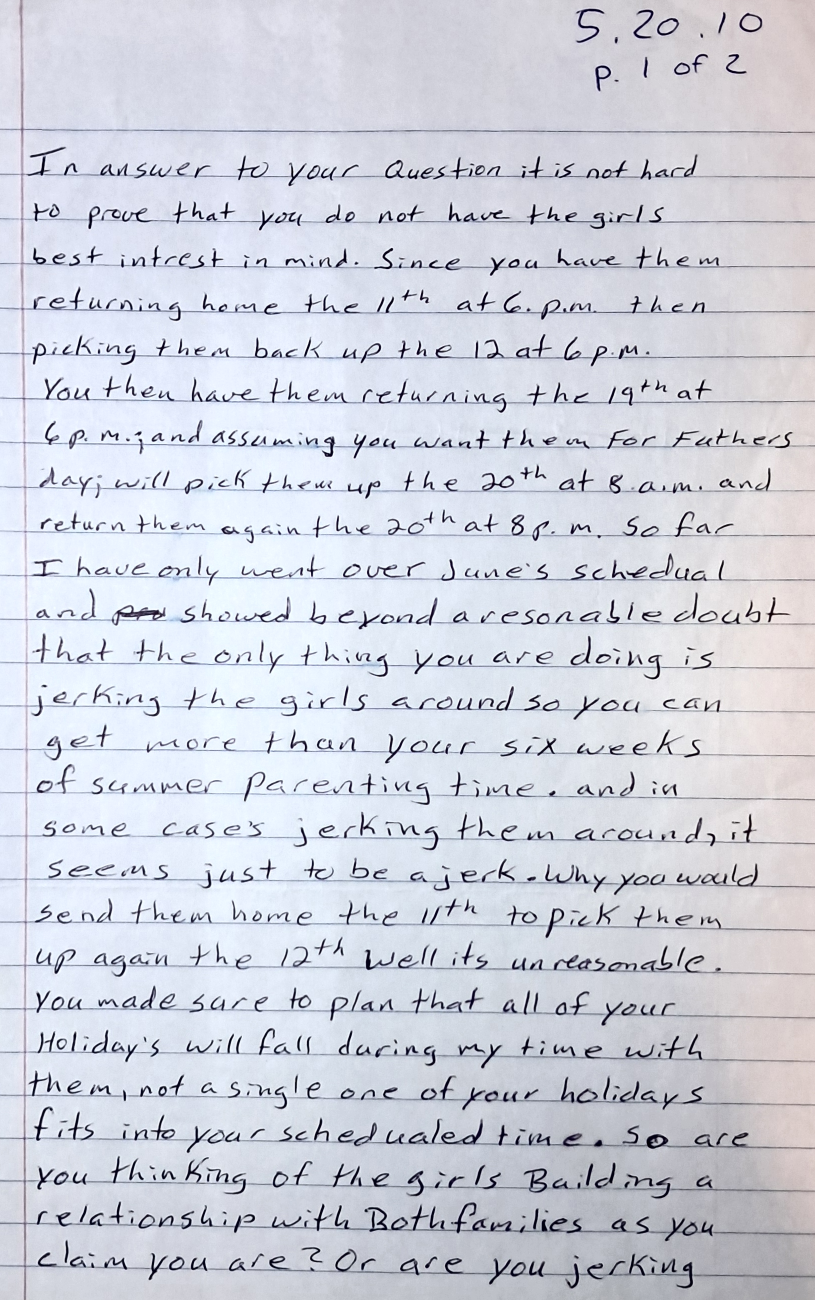 5.20.10
p. 1 of 2
In answer to your Question it is not hard
to prove that you do not have the girls
best intrest in mind. Since you have them
returning home the 11th at 6. p.m. then
picking them back up the 12 at 6 p.m.
You then have them returning the 19th at
6 p.m.; and assuming you want them For Fathers
day; will pick them up the 20th at 8 a.m. and
return them again the 20th at 8 p.m. So far
I have only went over June's schedual
and showed beyond a resonable doubt
that the only thing you are doing is
jerking the girls around so you can
get more than your six weeks
of summer parenting time. and in
some case's jerking them around, it
seems just to be a jerk. Why you would
send them home the 11th to pick them
up again the 12th well its unreasonable.
You made sure to plan that all of your
Holiday's will fall during my time with
them, not a single one of your holidays
fits into your schedualed time. So are
you thinking of the girls Building a
relationship with Both families as you
claim you are? Or are you jerking